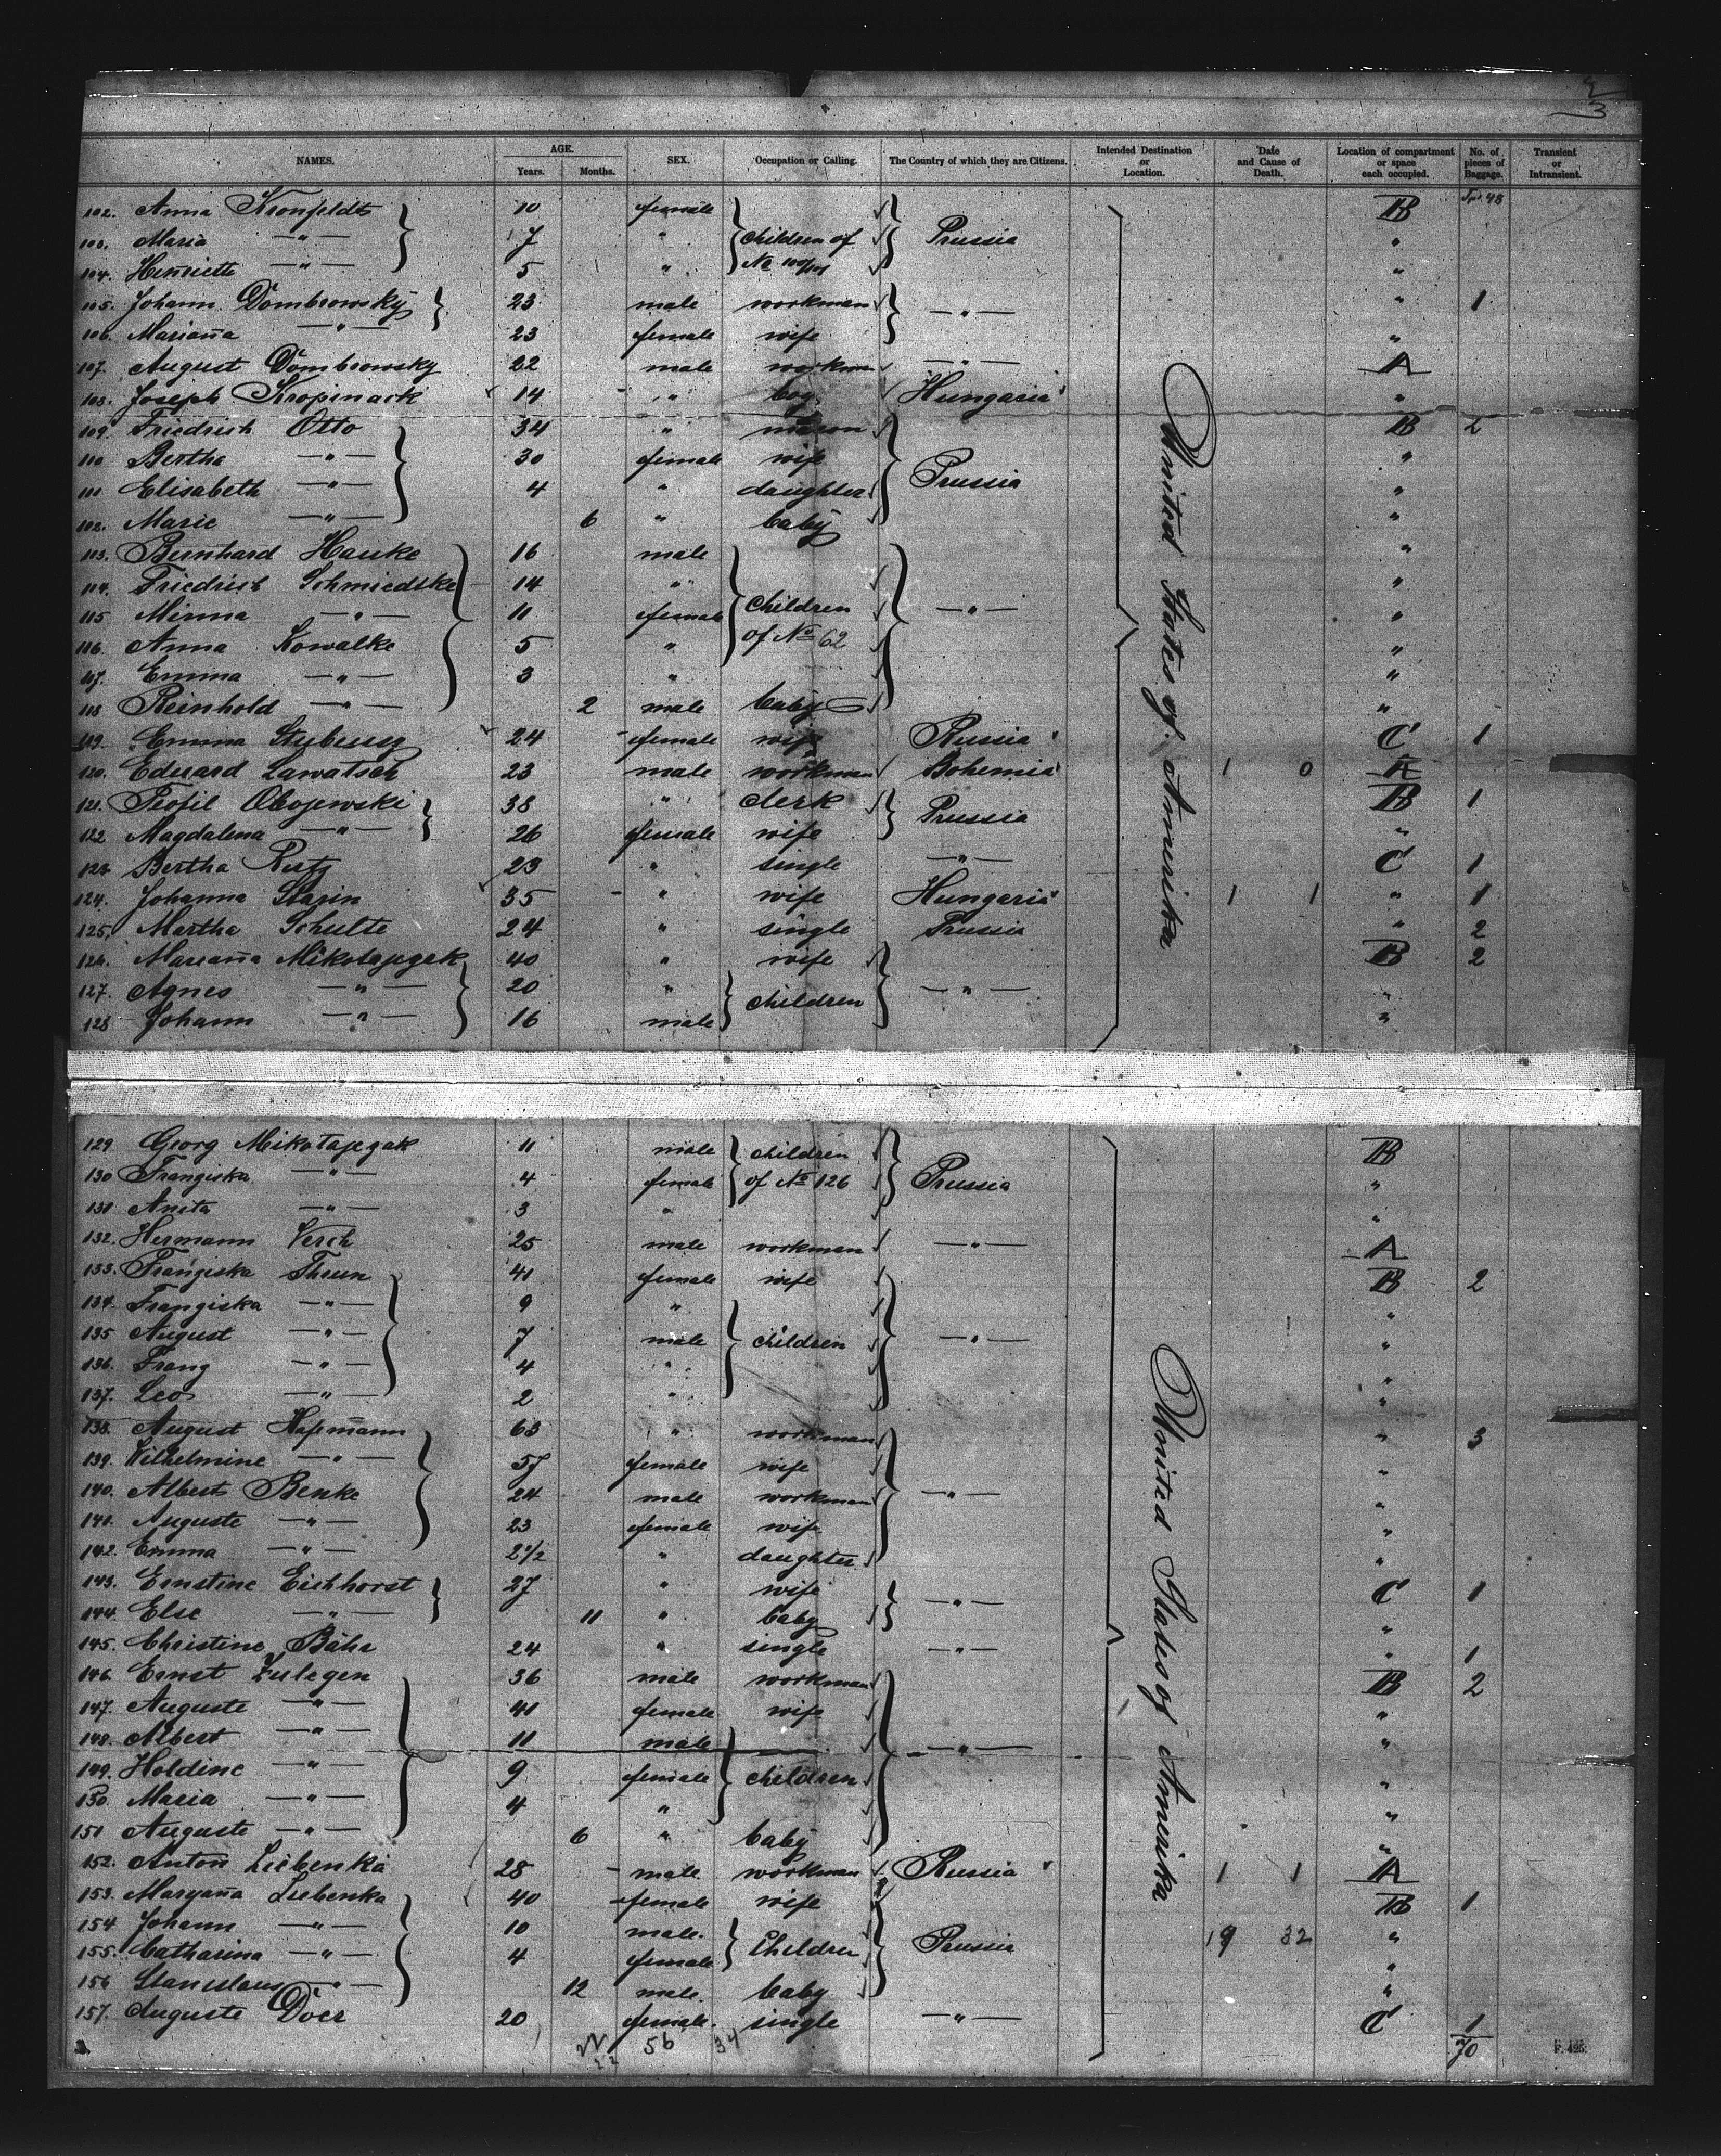 2
3
NAMES. AGE. Years. Months. SEX. Occupation or Calling. The Country of which they are Citizens. Intended Destination or Location. Date and Cause of Death. Location of compartment or space each occupied. No. of pieces of Baggage. Transient or Intransient.
102. Anna Kronfeldt 10 female children of No 100/101 Prussia B 48
103. Maria —"— 7 " "
104. Henriette —"— 5 " "
105. Johann Dombrowsky 23 male workman —"— " 1
106. Marianna —"— 23 female wife "
107. August Dombrowsky 22 male workman —"— A
108. Joseph Kropinack 14 " boy Hungaria "
109. Friedrich Otto 34 " mason Prussia B 2
110 Bertha —"— 30 female wife "
111 Elisabeth —"— 4 " daughter "
112. Marie —"— 6 " baby "
113. Bernhard Hauke 16 male children of No 62 —"— "
114. Friedrich Schmiedtke 14 " "
115 Minna —"— 11 female "
116. Anna Kowalke 5 " "
117. Emma —"— 3 " "
118 Reinhold —"— 2 male baby "
119. Emma Stubeusz 24 female wife Russia C 1
120. Eduard Lawatsch 23 male workman Bohemia 1 0 A
121. Teofil Obojewski 38 " clerk Prussia B 1
122 Magdalena —"— 26 female wife "
123 Bertha Rutz 23 " single —"— C 1
124. Johanna Starin 35 " wife Hungaria 1 1 " 1
125. Martha Schulte 24 " single Prussia " 2
126. Marianna Mikolajezak 40 " wife —"— B 2
127. Agnes —"— 20 " children "
128 Johann —"— 16 male "
United States of Amerika
129 Georg Mikolajezak 11 male children of No 126 Prussia B
130 Franziska —"— 4 female "
131 Anita —"— 3 " "
132. Hermann Verch 25 male workman —"— A
133. Franziska Thrun 41 female wife —"— B 2
134. Franziska —"— 9 " children "
135 August —"— 7 male "
136. Franz —"— 4 " "
137. Leo —"— 2 " "
138. August Hasemann 63 " workman —"— " 3
139. Wilhelmine —"— 57 female wife "
140. Albert Benke 24 male workman "
141. Auguste —"— 23 female wife "
142. Emma —"— 2 1/2 " daughter "
143. Ernstine Eichhorst 27 " wife —"— C 1
144. Else —"— 11 " baby "
145. Christine Bähr 24 " single —"— " 1
146. Ernst Zulegen 36 male workman —"— B 2
147. Auguste —"— 41 female wife "
148. Albert —"— 11 male children "
149. Holdine —"— 9 female "
150. Maria —"— 4 " "
151 Auguste —"— 6 " baby "
152. Anton Liebenka 28 male workman Russia 1 1 A
153. Maryanna Liebenka 40 female wife Prussia B 1
154 Johann —"— 10 male. Children 19 32 "
155. Catharina —"— 4 female "
156 Stanislaus —"— 12 male. baby "
157. Auguste Doer 20 female. single —"— C 1
United States of Amerika
22 56 34 70
F. 425.